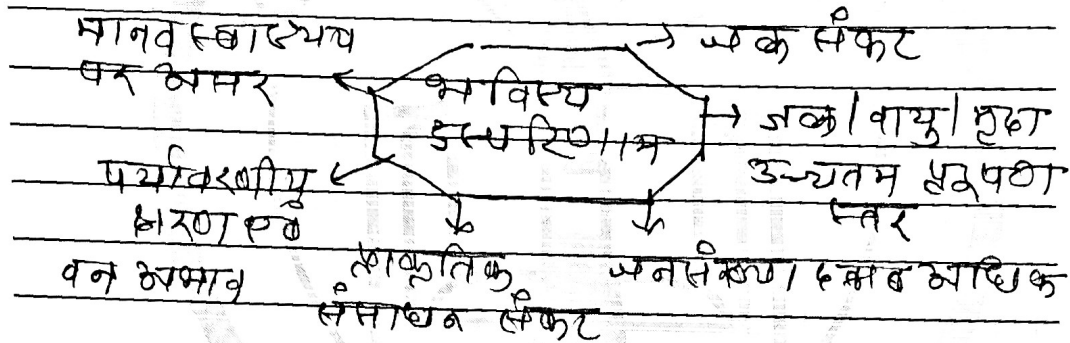 मानव स्वास्थ्य
पर असर
जल संकट
भविष्य
दुष्परिणाम
जल / वायु / मृदा
उच्चतम प्रदूषण
स्तर
पर्यावरणीय
क्षरण एवं
वन अभाव
प्राकृतिक
संसाधन संकट
जनसंख्या दबाब अधिक